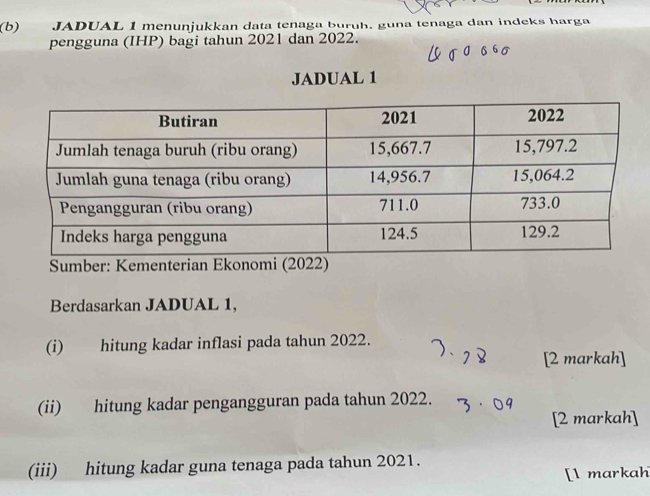 (b) JADUAL 1 menunjukkan data tenaga buruh, guna tenaga dan indeks harga
pengguna (IHP) bagi tahun 2021 dan 2022.
JADUAL 1
Butiran 2021 2022
Jumlah tenaga buruh (ribu orang) 15,667.7 15,797.2
Jumlah guna tenaga (ribu orang) 14,956.7 15,064.2
Pengangguran (ribu orang) 711.0 733.0
Indeks harga pengguna 124.5 129.2
Sumber: Kementerian Ekonomi (2022)
Berdasarkan JADUAL 1,
(i) hitung kadar inflasi pada tahun 2022. 3.78
[2 markah]
(ii) hitung kadar pengangguran pada tahun 2022. 3.09
[2 markah]
(iii) hitung kadar guna tenaga pada tahun 2021.
[1 markah